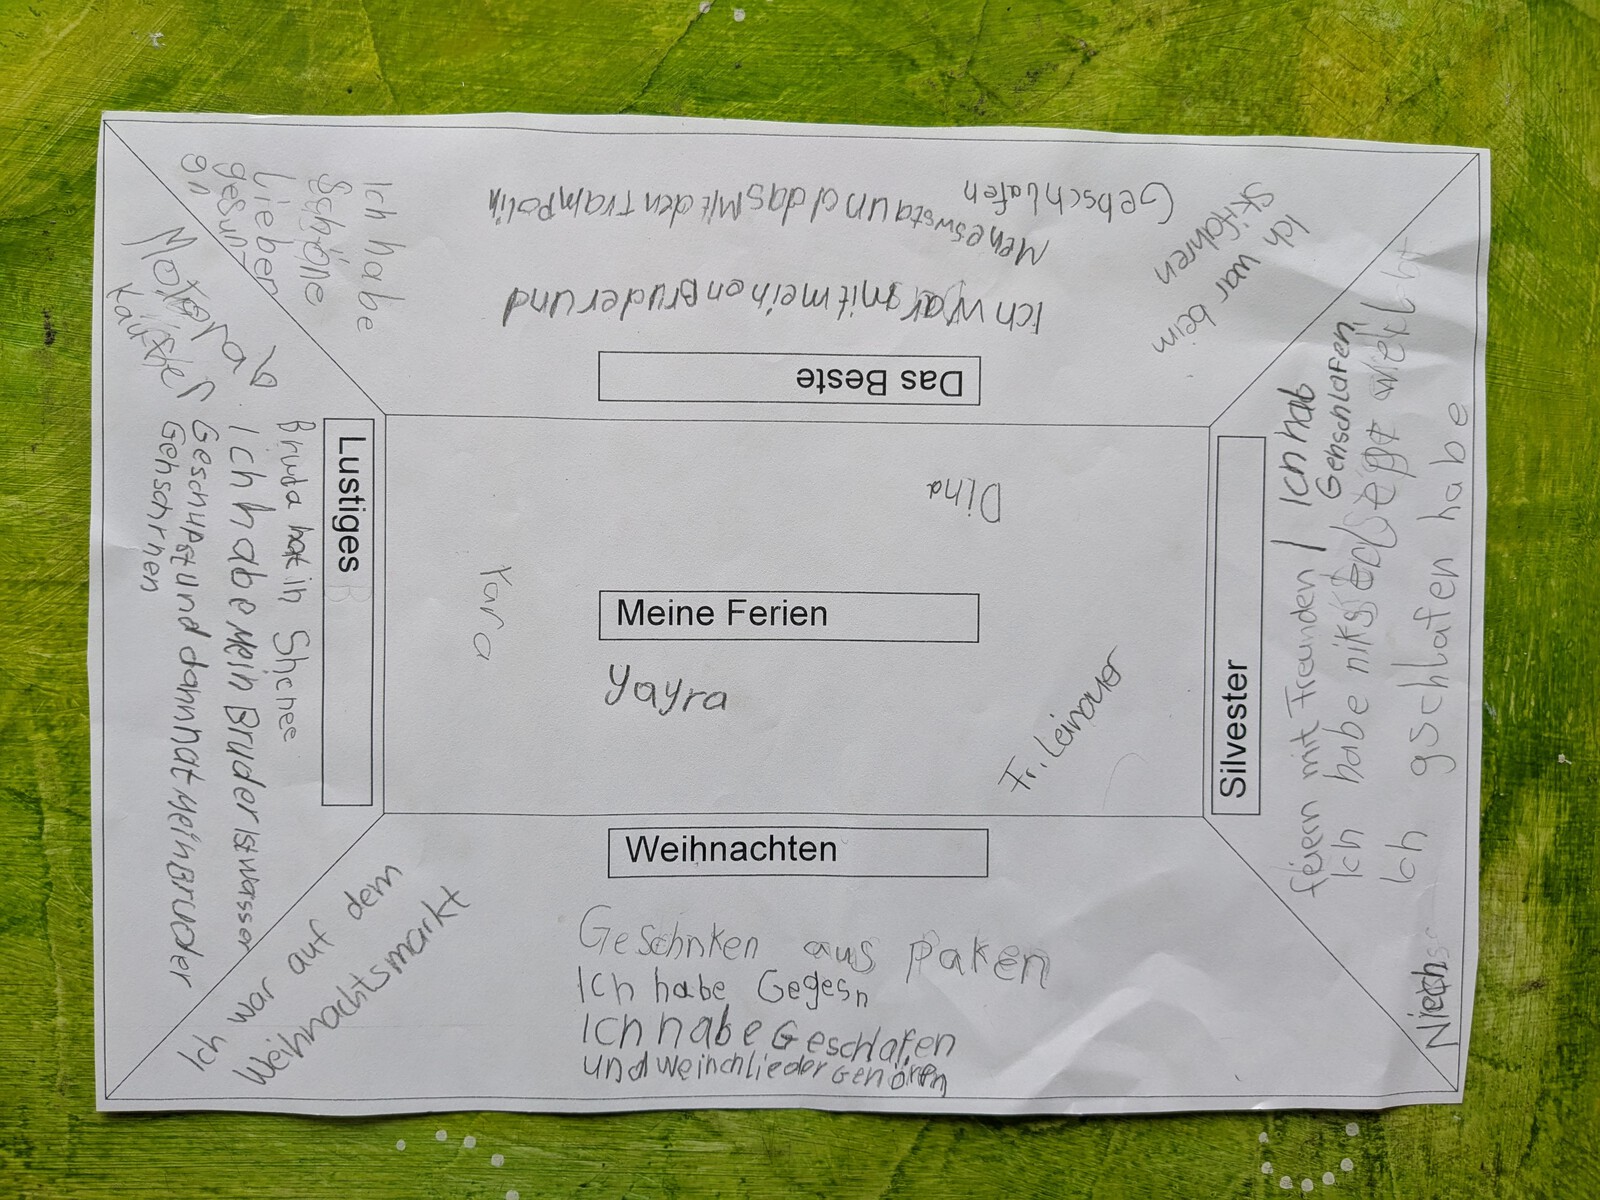 Meine Ferien
Yayra
Dina
Yara
Fr. Leinauer
Das Beste
Ich war mit meinen Bruder und
und das Mit den Trampolin
Gehschlafen
Ich war beim
Skifahren
Silvester
feiern mit Freunden
Ich hab
Gehschlafen
Ich habe niks
Ich gschlafen habe
Weihnachten
Geschnken aus paken
Ich habe Gegesn
Ich habe Geschlafen
und weinchlieder Gehören
Ich war auf dem
Weihnachtsmarkt
Lustiges
Bruda hat in Shcnee
Ich habe Mein Bruder Ist wasser
Geschupst und dann hat Mein Bruder
Gehschrnen
Ich habe
Schöne
Lieben
gesung
en